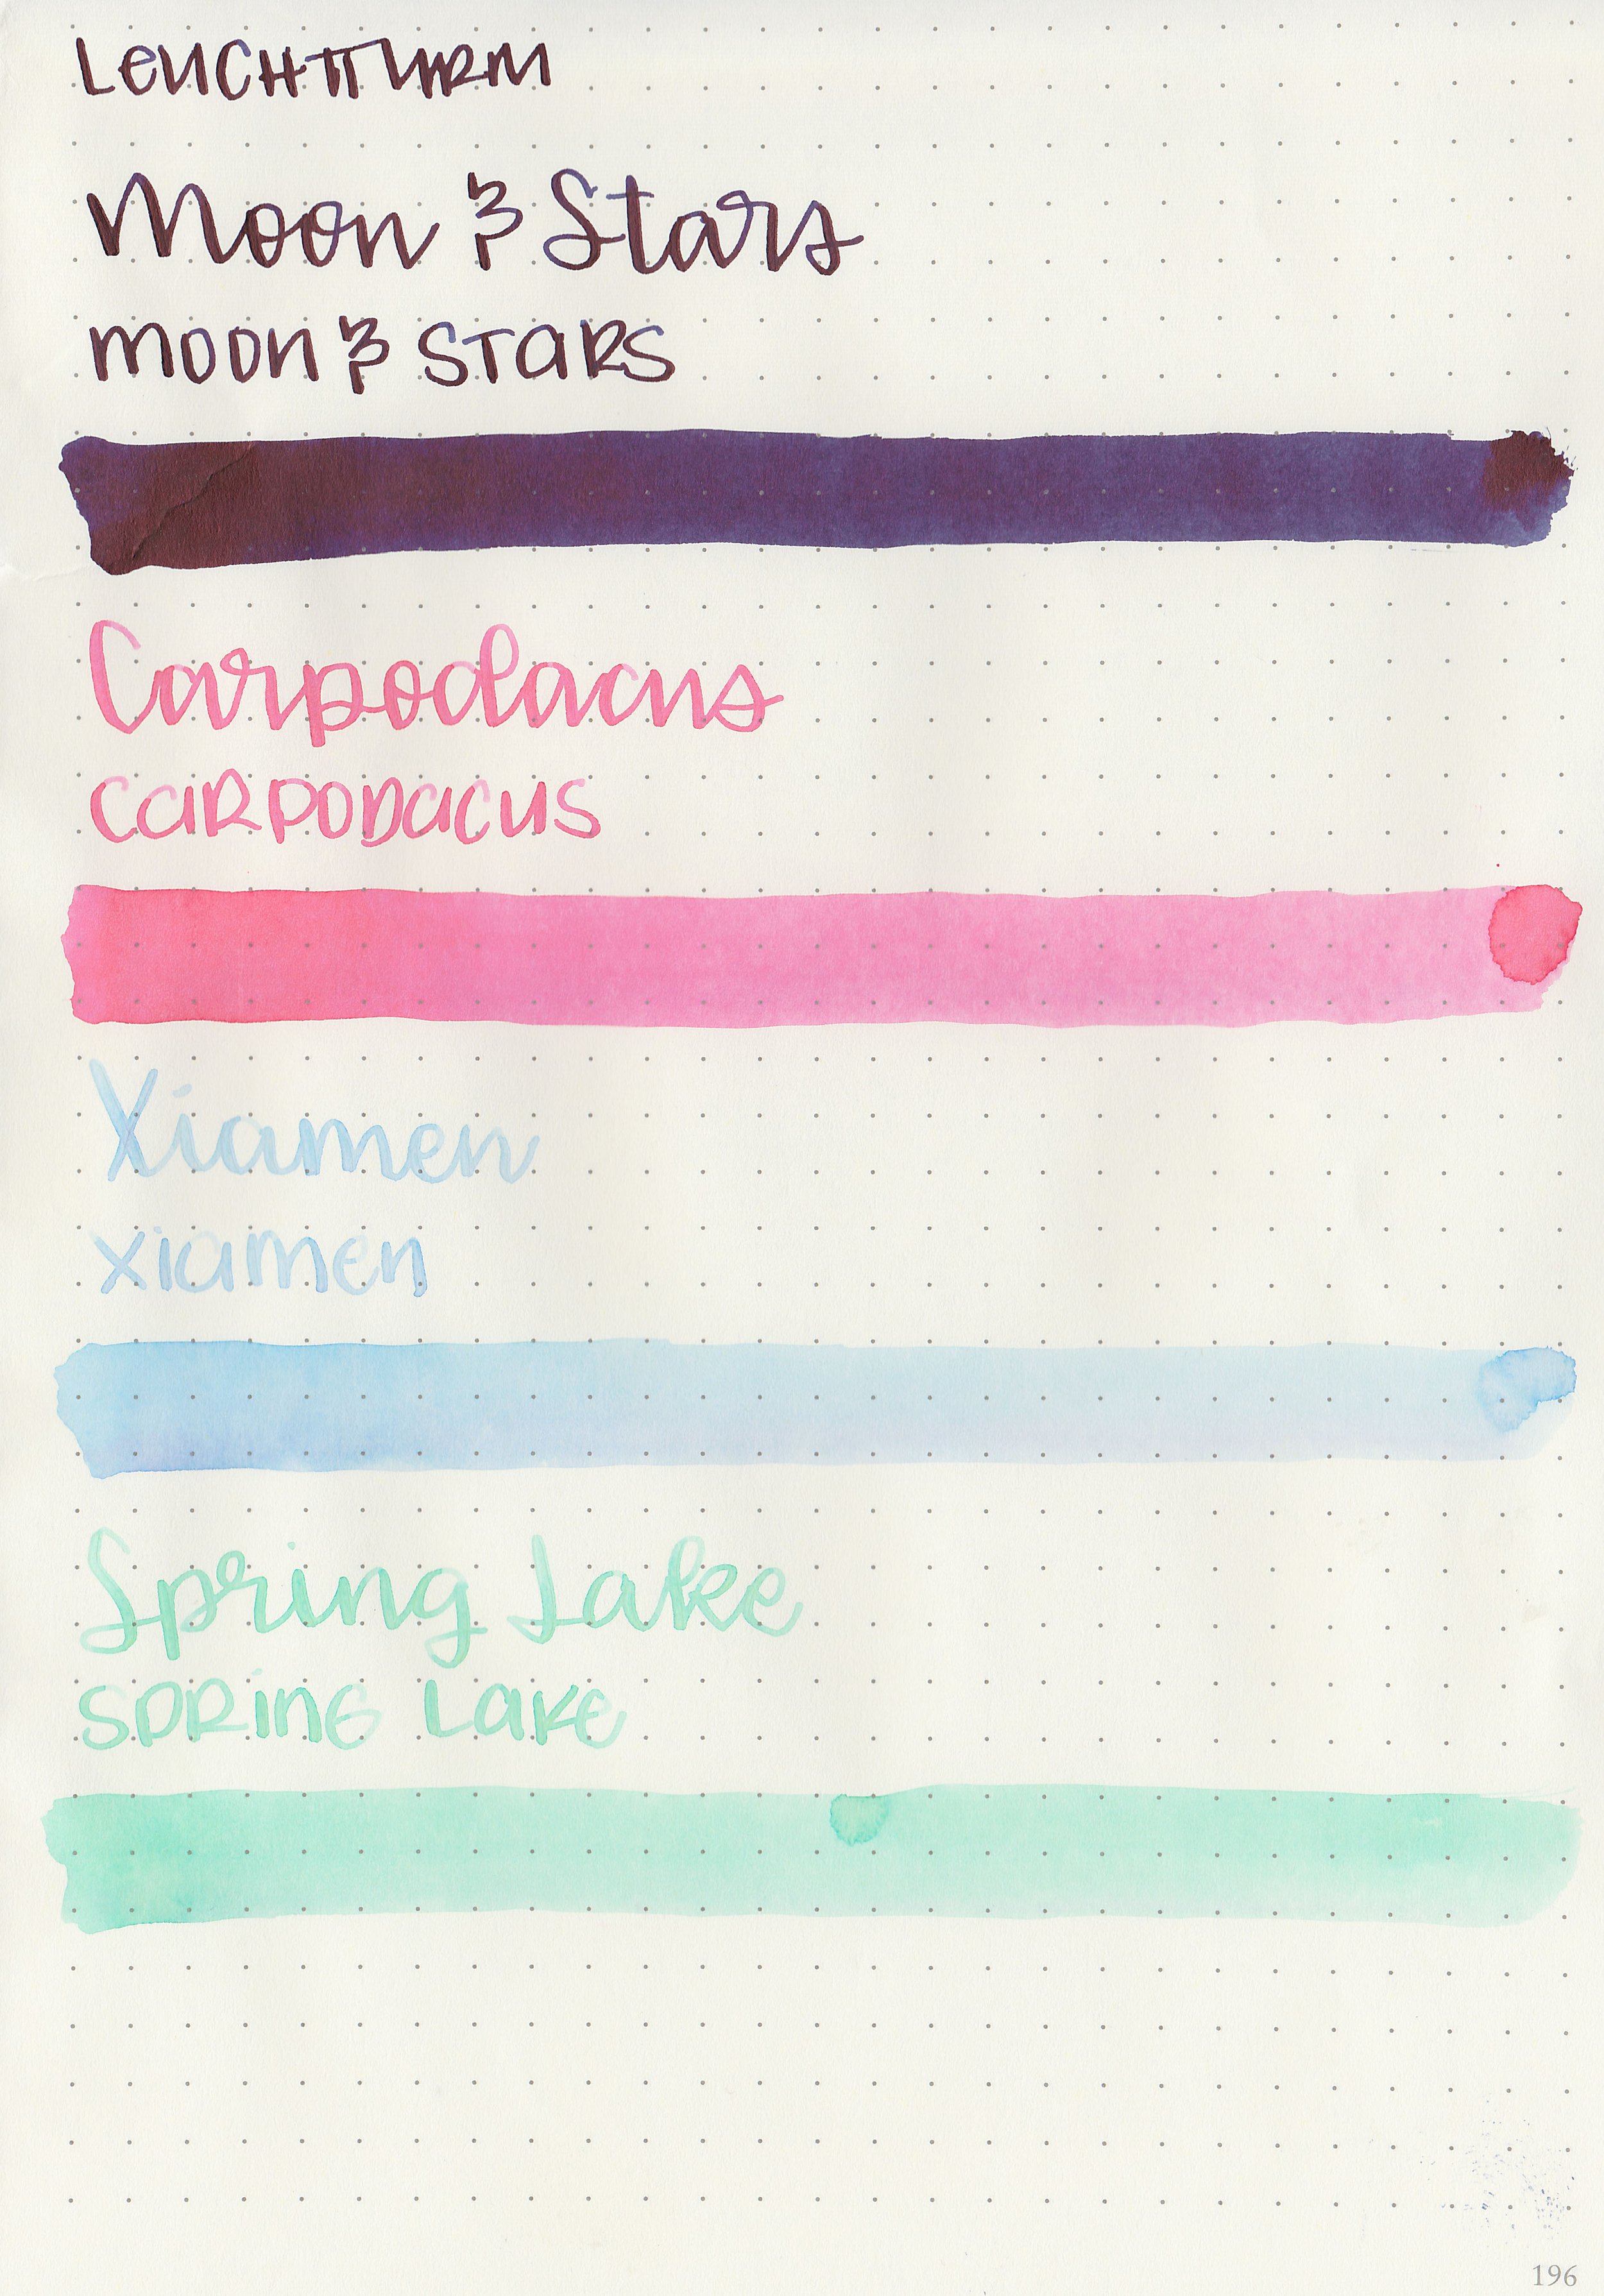 LEUCHTTURM
Moon & Stars
MOON & STARS
Carpodacus
CARPODACUS
Xiamen
XIAMEN
Spring Lake
SPRING LAKE
196